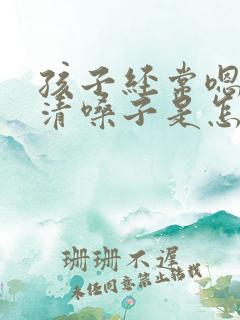 孩子经常嗯
清嗓子是怎
珊珊不迟
未经同意禁止转载